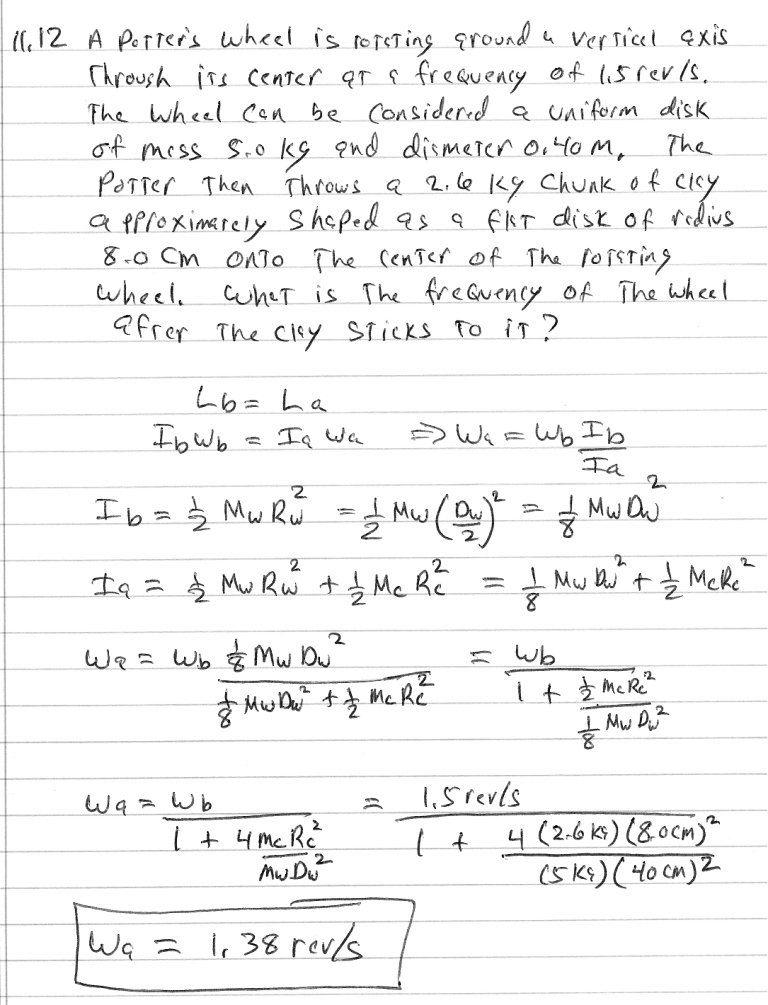 11.12 A Potter's wheel is rotating around a vertical axis
Through its center at a frequency of 1.5 rev/s.
The wheel can be considered a uniform disk
of mass 5.0 kg and diameter 0.40 m. The
Potter Then Throws a 2.6 kg chunk of clay
approximately shaped as a flat disk of radius
8.0 cm onto The center of The rotating
wheel. What is The frequency of The wheel
after The clay sticks to it?
Lb = La
Ib ωb = Ia ωa ⇒ ωa = ωb Ib/Ia
Ib = 1/2 Mw Rw² = 1/2 Mw (Dw/2)² = 1/8 Mw Dw²
Ia = 1/2 Mw Rw² + 1/2 Mc Rc² = 1/8 Mw Dw² + 1/2 Mc Rc²
ωa = ωb 1/8 Mw Dw² / (1/8 Mw Dw² + 1/2 Mc Rc²) = ωb / (1 + (1/2 Mc Rc²)/(1/8 Mw Dw²))
ωa = ωb / (1 + 4 Mc Rc²/(Mw Dw²)) = 1.5 rev/s / (1 + 4 (2.6 kg)(8.0 cm)²/((5 kg)(40 cm)²))
ωa = 1.38 rev/s